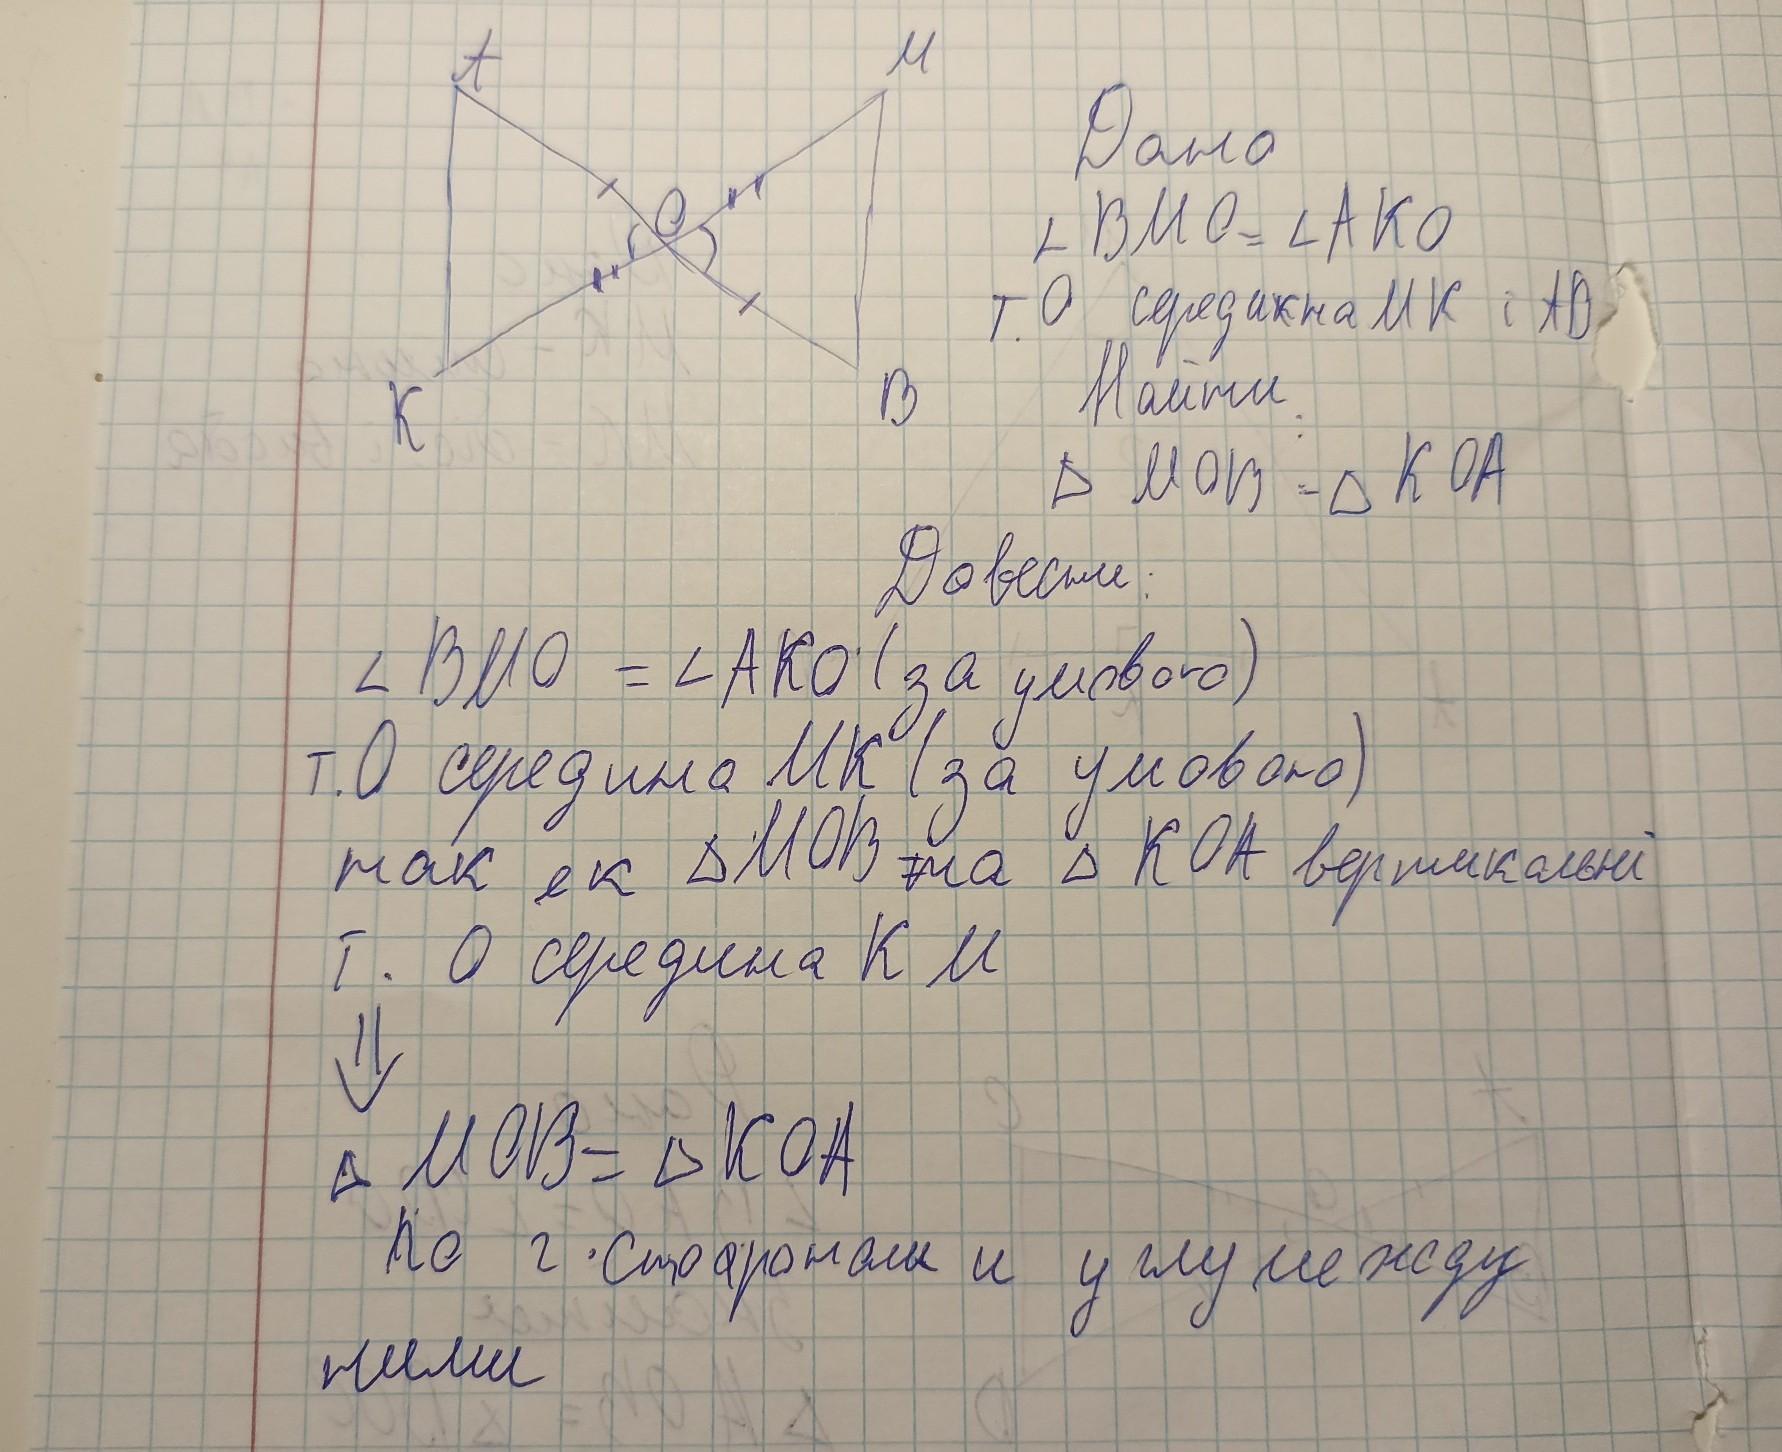 A
M
O
K
B
Дано
∠BMO = ∠AKO
т. O середина MK і AB
Найти:
△ MOB = △ KOA
Довести:
∠ BMO = ∠AKO (за умовою)
т. O середина MK (за умовою)
так як △MOB та △ KOA вертикальні
т. O середина K M
⇓
△ MOB = △ KOA
По 2. сторонам и углу между
ними